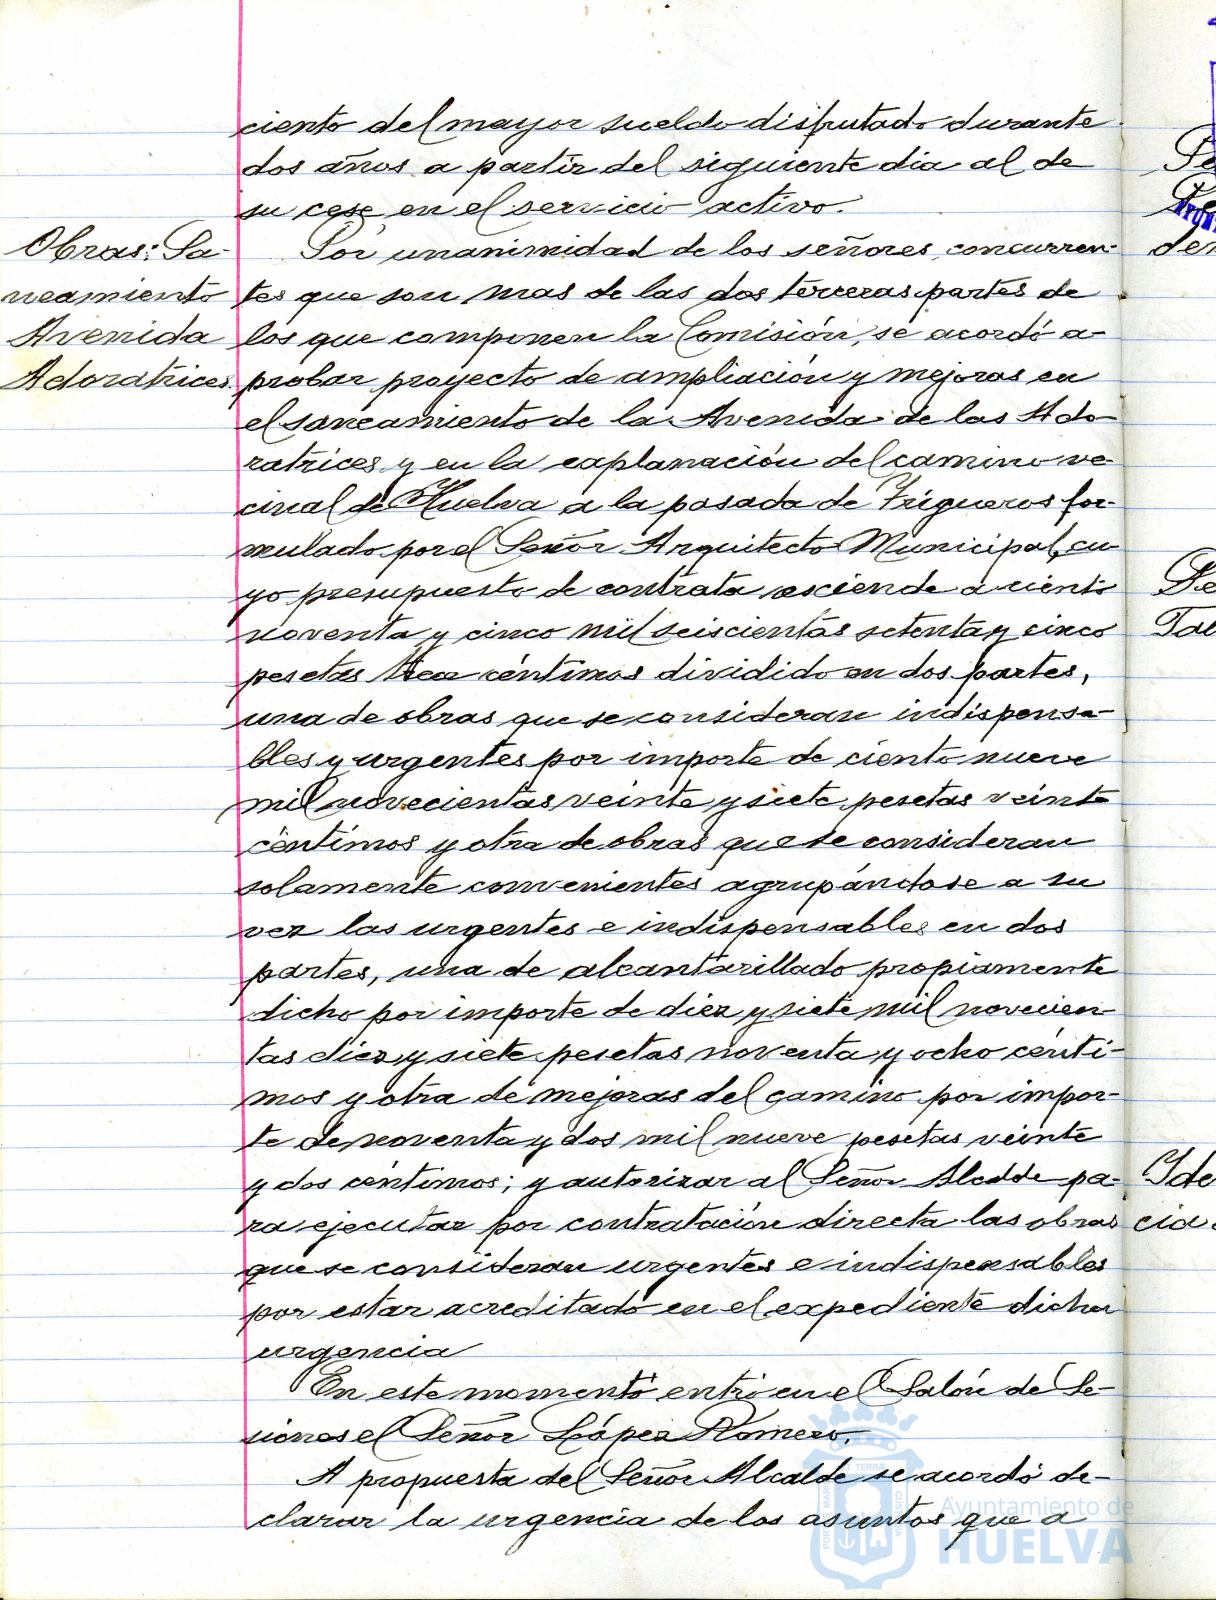 ciento del mayor sueldo disfrutado durante
dos años a partir del siguiente dia al de
su cese en el servicio activo.
Obras: Sa-
neamiento
Avenida
Adoratrices
Por unanimidad de los señores concurren-
tes que son mas de las dos terceras partes de
los que componen la Comisión, se acordó a-
probar proyecto de ampliación y mejoras en
el saneamiento de la Avenida de las Ado-
ratrices y en la explanación del camino ve-
cinal de Huelva a la pasada de Trigueros for-
mulado por el Señor Arquitecto Municipal, cu-
yo presupuesto de contrata asciende a ciento
noventa y cinco mil seiscientas setenta y cinco
pesetas tres céntimos dividido en dos partes,
una de obras que se consideran indispensa-
bles y urgentes por importe de ciento nueve
mil novecientas veinte y siete pesetas veinte
céntimos y otra de obras que se consideran
solamente convenientes agrupándose a su
vez las urgentes e indispensables en dos
partes, una de alcantarillado propiamente
dicho por importe de diez y siete mil novecien-
tas diez y siete pesetas noventa y ocho cénti-
mos y otra de mejoras del camino por impor-
te de noventa y dos mil nueve pesetas veinte
y dos céntimos; y autorizar al Señor Alcalde pa-
ra ejecutar por contratación directa las obras
que se consideran urgentes e indispensables
por estar acreditado en el expediente dicha
urgencia
En este momento entró en el Salón de Se-
siones el Señor López Romero.
A propuesta del Señor Alcalde se acordó de-
clarar la urgencia de los asuntos que a
Ayuntamiento de
HUELVA